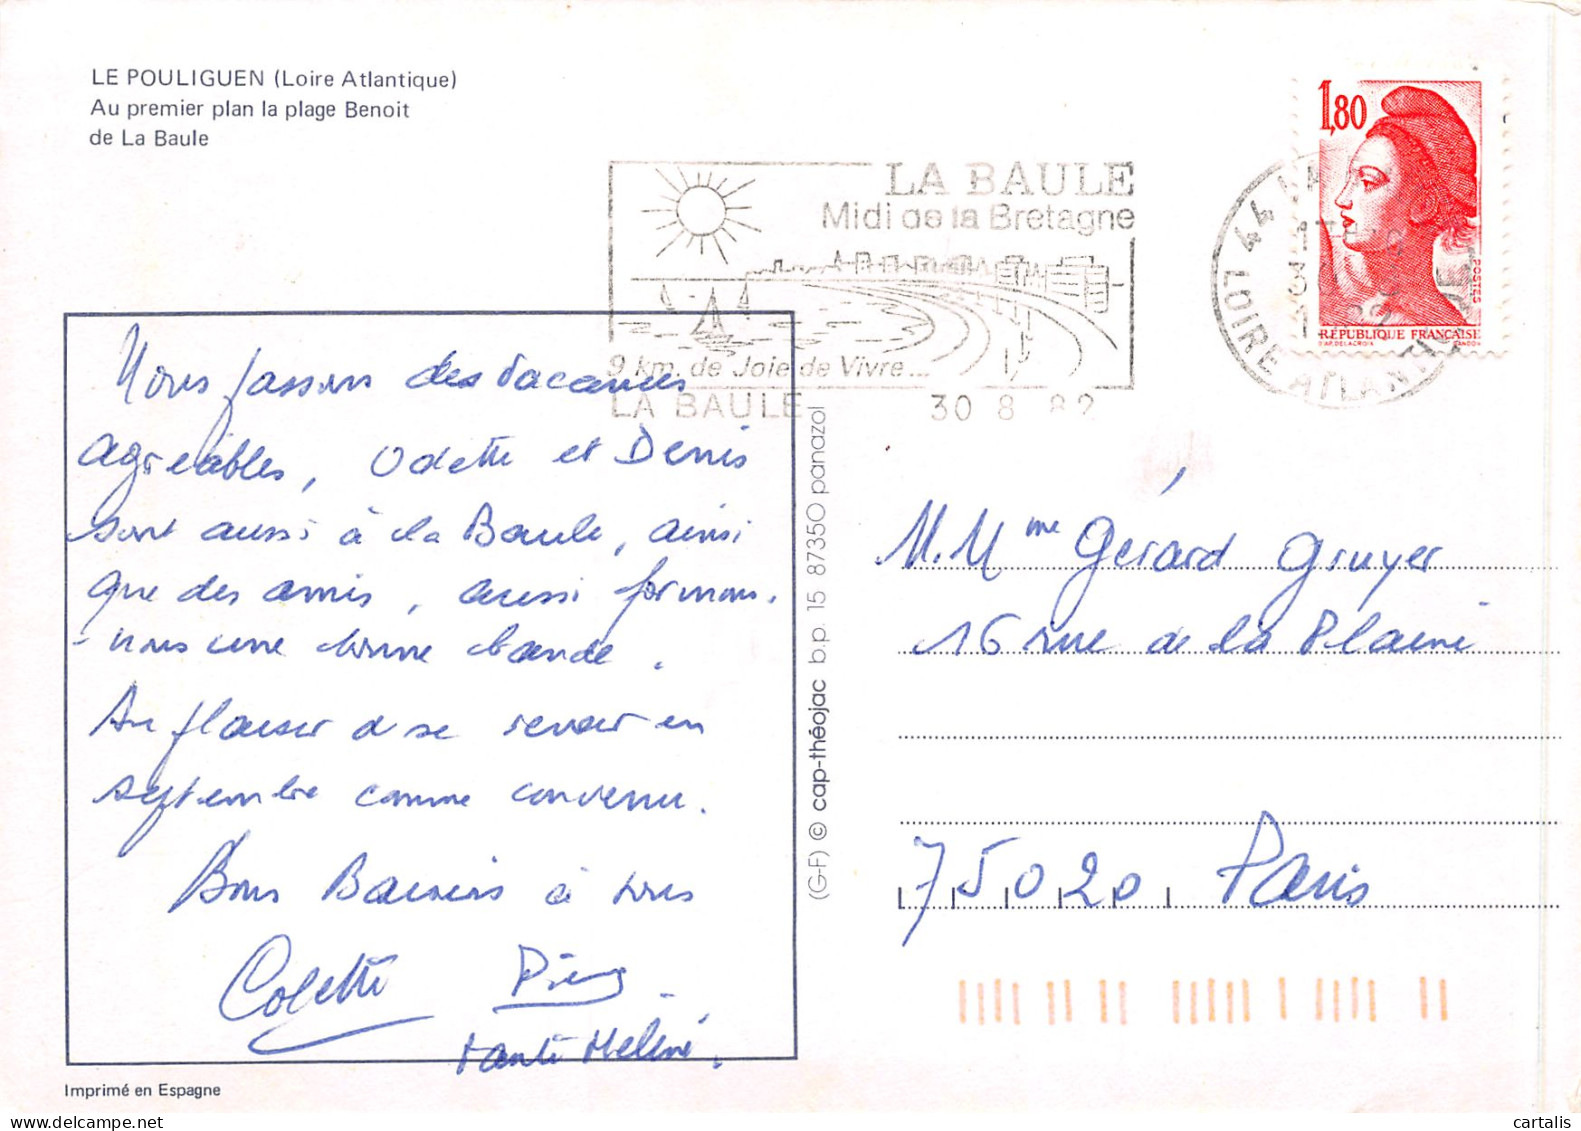 LE POULIGUEN (Loire Atlantique)
Au premier plan la plage Benoit
de La Baule
1,80
POSTES
RÉPUBLIQUE FRANÇAISE
LA BAULE
Midi de la Bretagne
9 km. de Joie de Vivre...
LA BAULE 30 8 82
44 LA
LOIRE ATLANTIQUE
Nous passons des vacances
agréables, Odette et Denis
sont aussi à la Baule, ainsi
que des amis, aussi formons-
-nous une bonne bande.
Au plaisir de se revoir en
septembre comme convenu.
Bons Baisers à tous
Colette Pierre
Tante Hélène.
M. Mme Gérard Gruyer
16 rue de la Plaine
75020 Paris
(G-F) © cap-théojac b.p. 15 87350 panazol
Imprimé en Espagne
cartalis